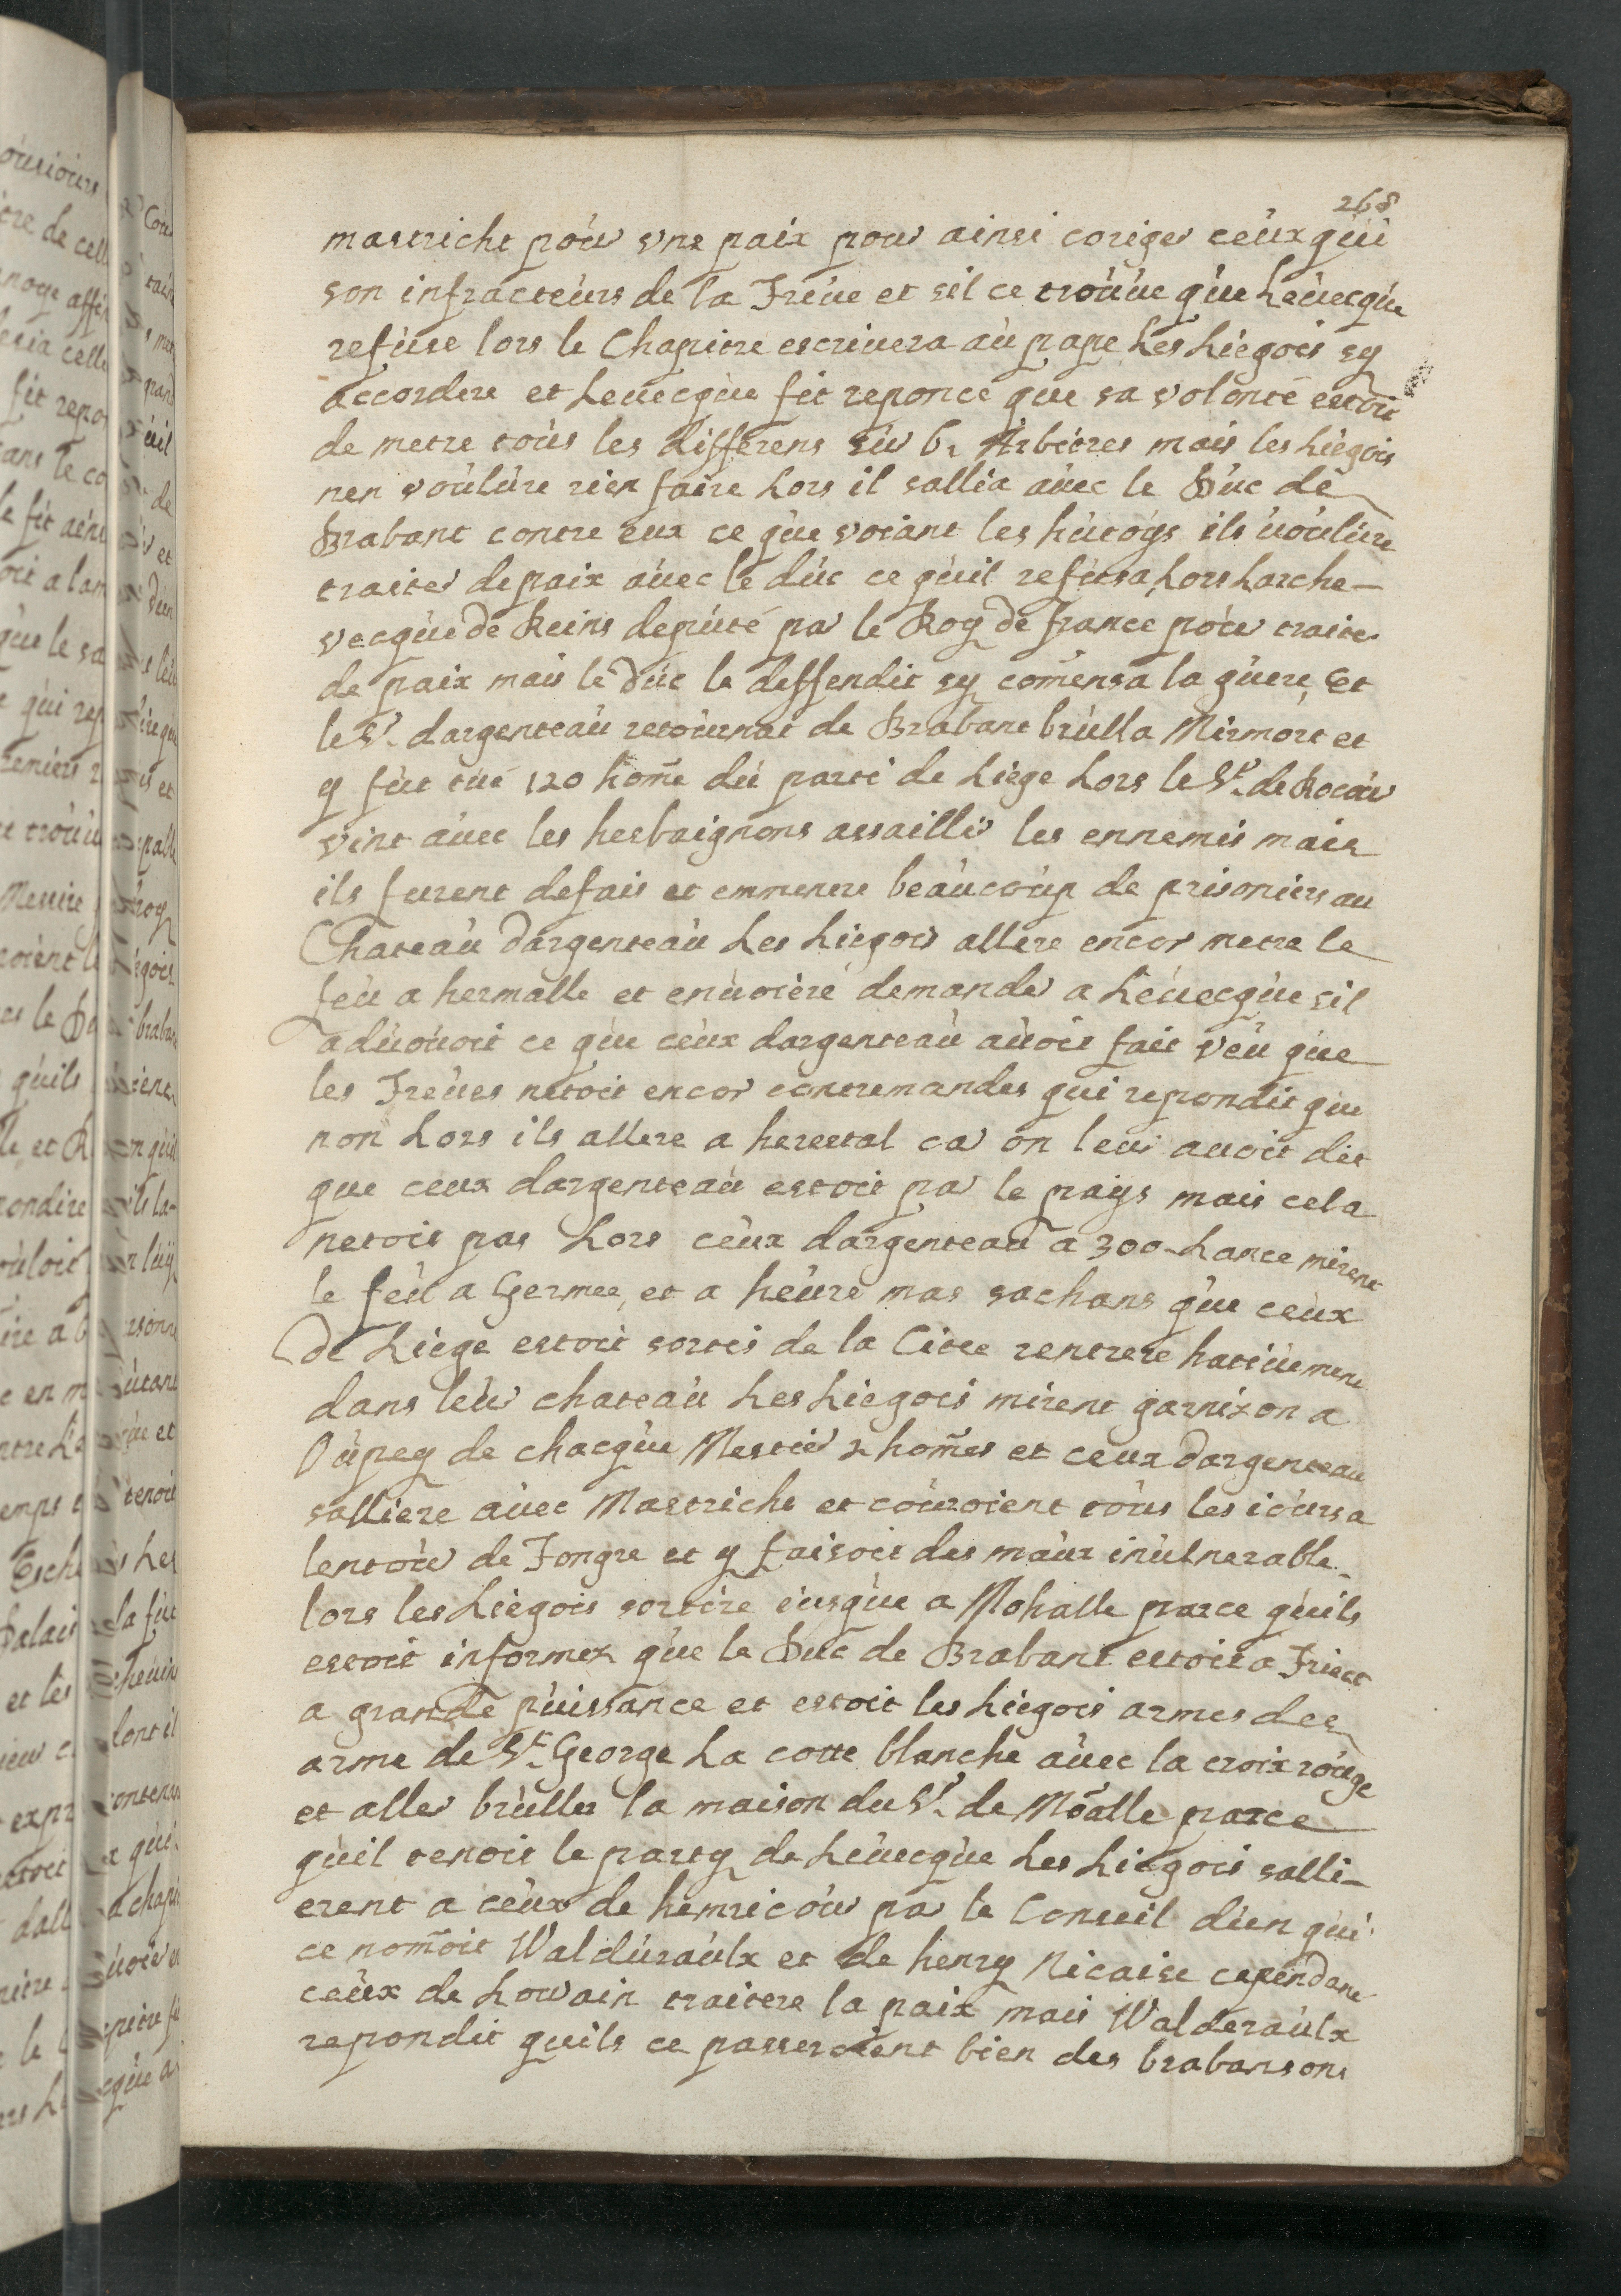 268
mastricht pour vne paix pour ainsi coriger ceux qui
son infracteurs de la Treue et sil ce trouue que Leuecque
refuse lors le Chapitre escriuera au pape Les Liegois sy
accordere et Leuecque fit reponce que sa volonté estoit
de metre tous les differens sur 6 Arbitres mais les Liegois
nen voulure rien faire Lors il sallia auec le Duc de
Brabant contre eux ce que voiant les hutoys ils uoulure
traiter de paix auec le duc ce quil refusa Lors Larche-
vecque de Reins deputé par le Roy de france pour traiter
de paix mais le Duc le deffendit sy comensa la guere, Et
le Sr. dargenteau retournat de Brabant brulla Mirmort et
y fut tué 120 home du parti de Liege Lors le Sr. de Rocour
vint auec les hesbaignons assaillir les ennemis mais
ils furent defais et emmenere beaucoup de prisoniers au
Chateau dargenteau Les Liegois allere encor metre le
feu a hermalle et enuoiere demander a Leuecque sil
aduouoit ce que ceux dargenteau auoit fait veu que
les Treues netoit encor contremandes qui repondit que
non Lors ils allere a herestal car on leur auoit dit
que ceux dargenteau estoit par le pays mais cela
netois pas Lors ceux dargenteau a 300 Lance mirent
le feu a Germee, et a heure mas sachans que ceux
de Liege estoit sortis de la Citee rentrere hatiuement
dans leur chateau Les Liegois mirent garnizon a
Oupey de chacque Mestier 2 homes et ceux dargenteau
salliere auec Mastricht et couroient tous les iours a
lentour de Tongre et y faisoit des maux inulnerable
lors les Liegois sortire iusque a Mohalle parce quils
estoit informez que le Duc de Brabant estoit a Triect
a grande puissance et estoit les Liegois armes des
arme de St. George La cotte blanche auec la croix rouge
et aller bruller la maison du Sr. de Moalle parce
quil tenoit le party de Leuecque Les Liegois salli-
erent a ceux de hemricour par le Conseil dun qui
ce nomoit Walduraulx et de henry Nicaise cependant
ceux de Louvain traitere la paix mais Walderaulx
repondit quils ce passeroient bien des brabansons